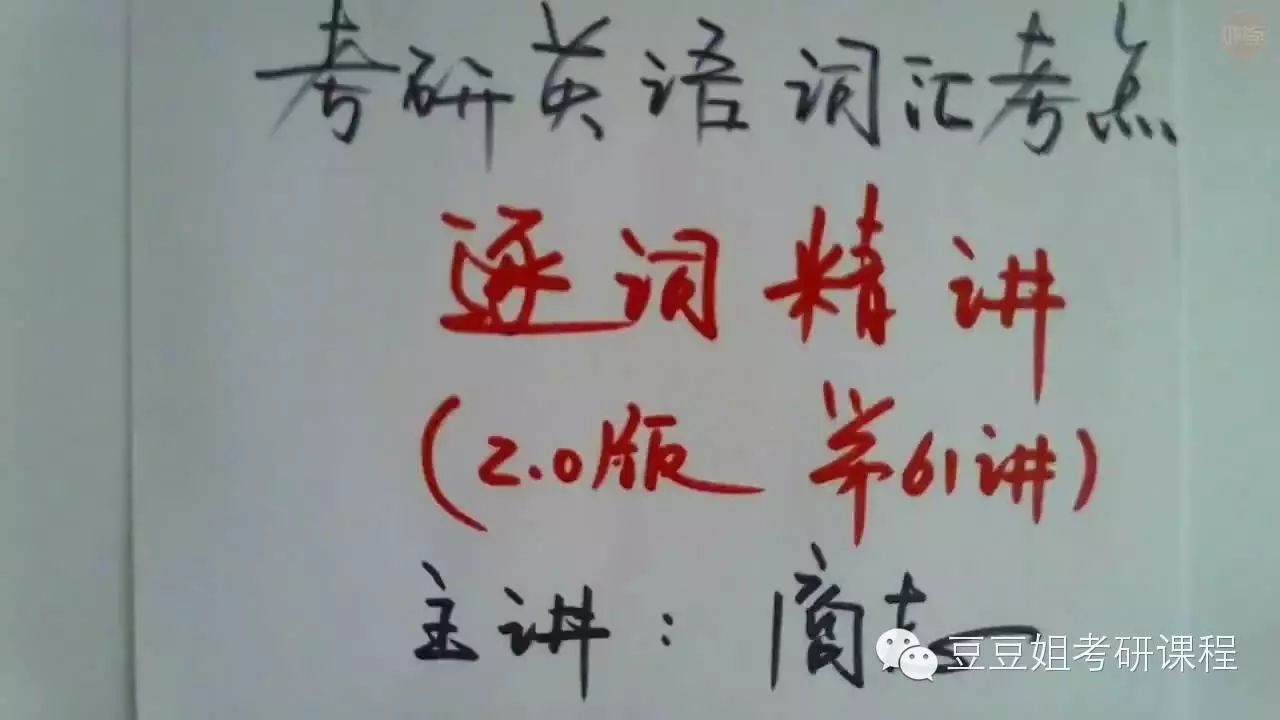 考研英语词汇考点
逐词精讲
(2.0版 第61讲)
主讲：商志
豆豆姐考研课程